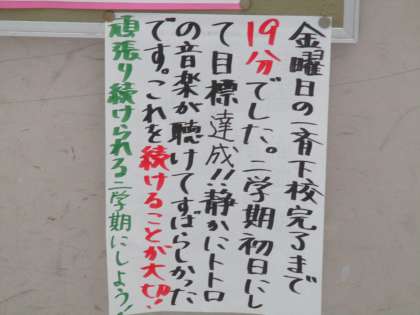 金曜日の一斉下校完了まで
19分でした。二学期初日にし
て目標達成!!静かにトトロ
の音楽が聴けてすばらしかった
です。これを続けることが大切!
頑張り続けられる二学期にしよう!